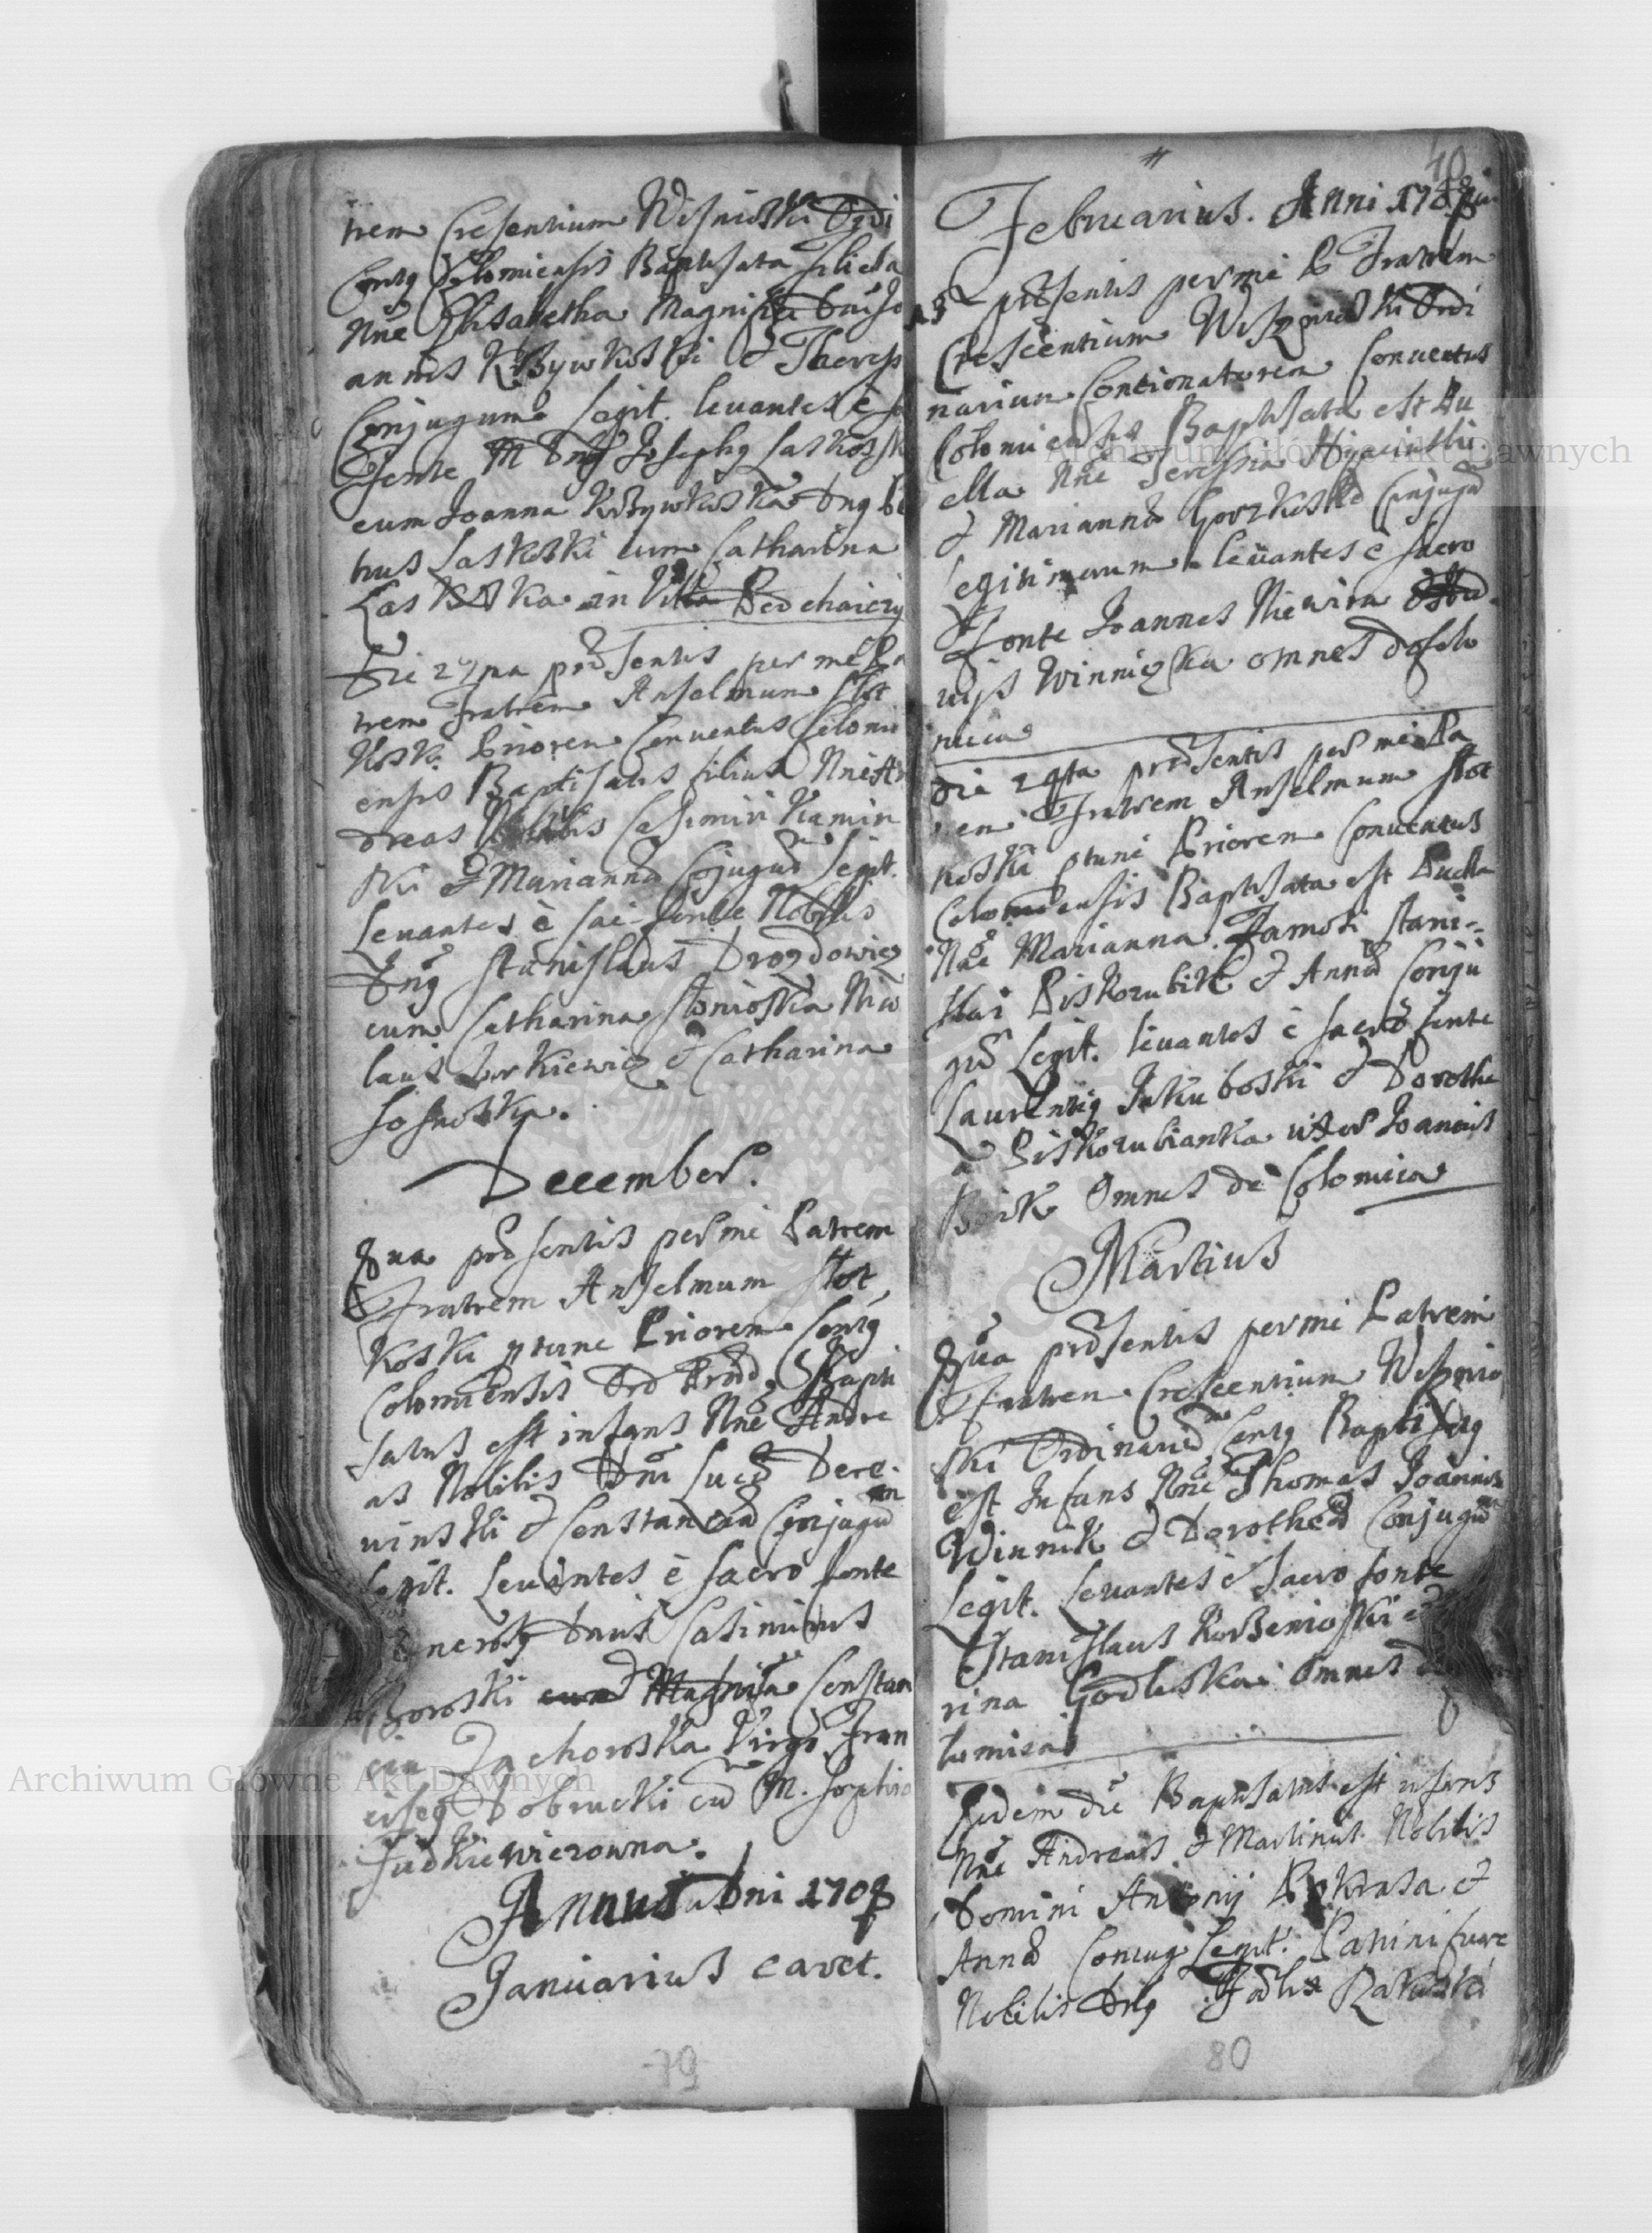 trem Cresentium Wisnioski Ordi
Contg Colomiensis Baptisata filiola
Nne Elisabetha Magnifici Dni Jo
annis Krzywkoski & Theress
Conjugum Legit. levantes è s
Fonte M Dng Josephg Laskosk
cum Joanna Krzywkoska Dng
trus Laskoski cum Catharina
Laskoska in Villa
Die 27ma prsentis per me Pa
trem Fratrem Anselmum Slot
koski Priorem Conventus Colomi
ensis Baptisatus filius Nne An
dreas Nobilis Casimiri Kamin
ski & Marianna Cojugum Legit.
Levantes è sac fonte Nobilis
Dng Stanislaus Drozdowicz
cum Catharina Slonioska Nico
laus Jurkiewicz & Catharina
Sosnoska.
December.
8va prsentis per me Patrem
Fratrem Anselmum Slot
koski ptunc Priorem Contg
Colomiensis Ord Prdd. Bapti
satus est infans Nne Andre
as Nobilis Dni Lucae Dere
winski & Constantiae Conjugum
Legit. Levantes è sacro fonte
Generosg Dnus Casimirus
oroski cum Magnifica Constan
cia Zachoroska Virgo Fran
ciscg Dobrucki cu M. Sophia
Judkiewiczowna.
Annus Dni 1708
Januarius caret.
79
40
Februarius. Anni 1708
15 prsentis per me P Fratrem
Crescentium Wisznioski Ordi
narium Contionatorem Conventus
Colomiensis Baptisata est Pu
ella Nne Teressia Hyacinthi
& Marianna Gorzkoski Conjugum
legitimorum levantes è sacro
Fonte Joannes Niewira
Winniczka omnes de Colo
micia
Die 24ta prsentis per me Pa
em Fratrem Anselmum Slot
koski ptunc Priorem Conventus
Colomiensis Baptisata est Puella
Nne Marianna. Famosi Stani-
slai Piskozubik & Anna Conju
gum Legit. levantes è sacro fonte
Laurentig Jakuboski & Dorothe
a Piskozubianka uxor Joannis
Omnes de Colomicia
Martius
8va prsentis per me Patrem
Fratrem Crescentium Wisznio
ski Ordinarium Contg Baptisatg
est Infans Nne Thomas Joannis
Winnik & Dorothea Conjugum
Legit. Levantes è sacro fonte
Stanislaus Korzenioski &
rina Godleska Omnes
lomicia
Eadem die Baptisatus est infans
Nne Andreas & Martinus Nobilis
Domini Antonij Pokrasa &
Anna Coniug Legit. Patrini fuere
Nobilis Dng Rakoski
80
Archiwum Główne Akt Dawnych
Archiwum Główne Akt Dawnych